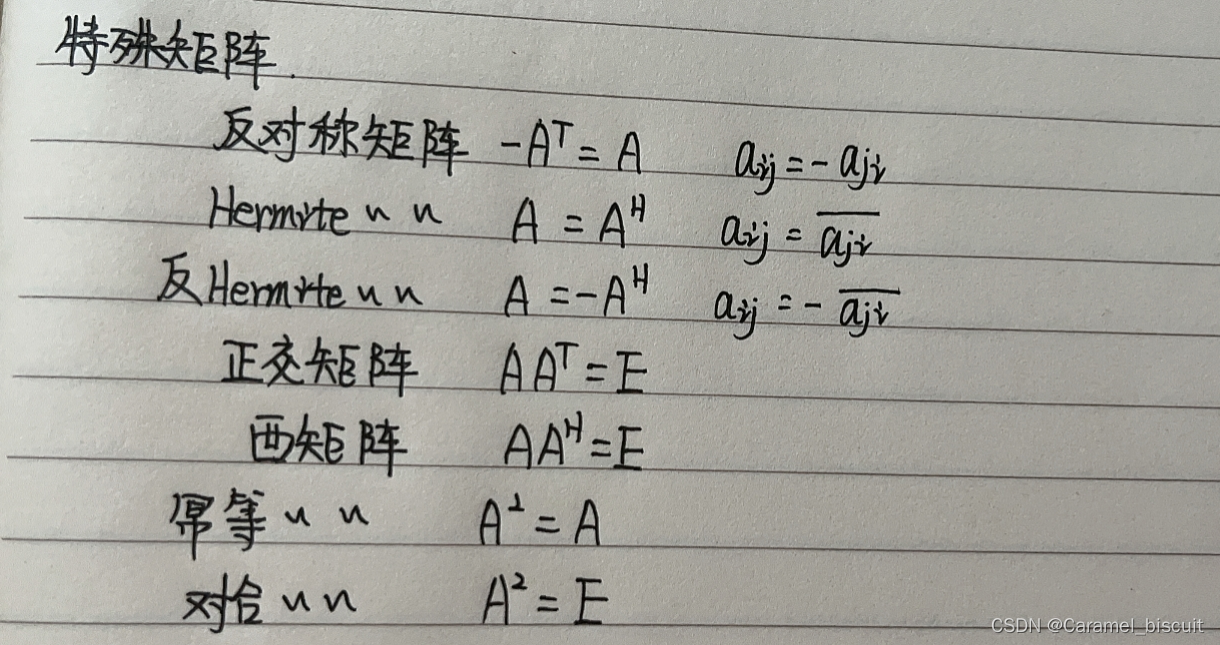 特殊矩阵.
反对称矩阵 -Aᵀ = A aᵢⱼ = - aⱼᵢ
Hermite 〃 〃 A = Aᴴ aᵢⱼ = \overline{aⱼᵢ}
反Hermite 〃 〃 A = -Aᴴ aᵢⱼ = - \overline{aⱼᵢ}
正交矩阵 AAᵀ = E
酉矩阵 AAᴴ = E
幂等 〃 〃 A² = A
对合 〃 〃 A² = E
CSDN @Caramel_biscuit